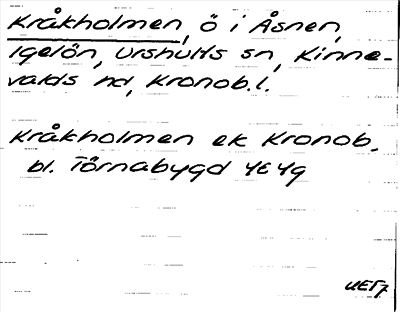 Kråkholmen, ö i Åsnen,
Igelön, Urshults sn, Kinne-
valds hd, Kronob.l.
Kråkholmen ek Kronob.
bl. Törnabygd 4E4g